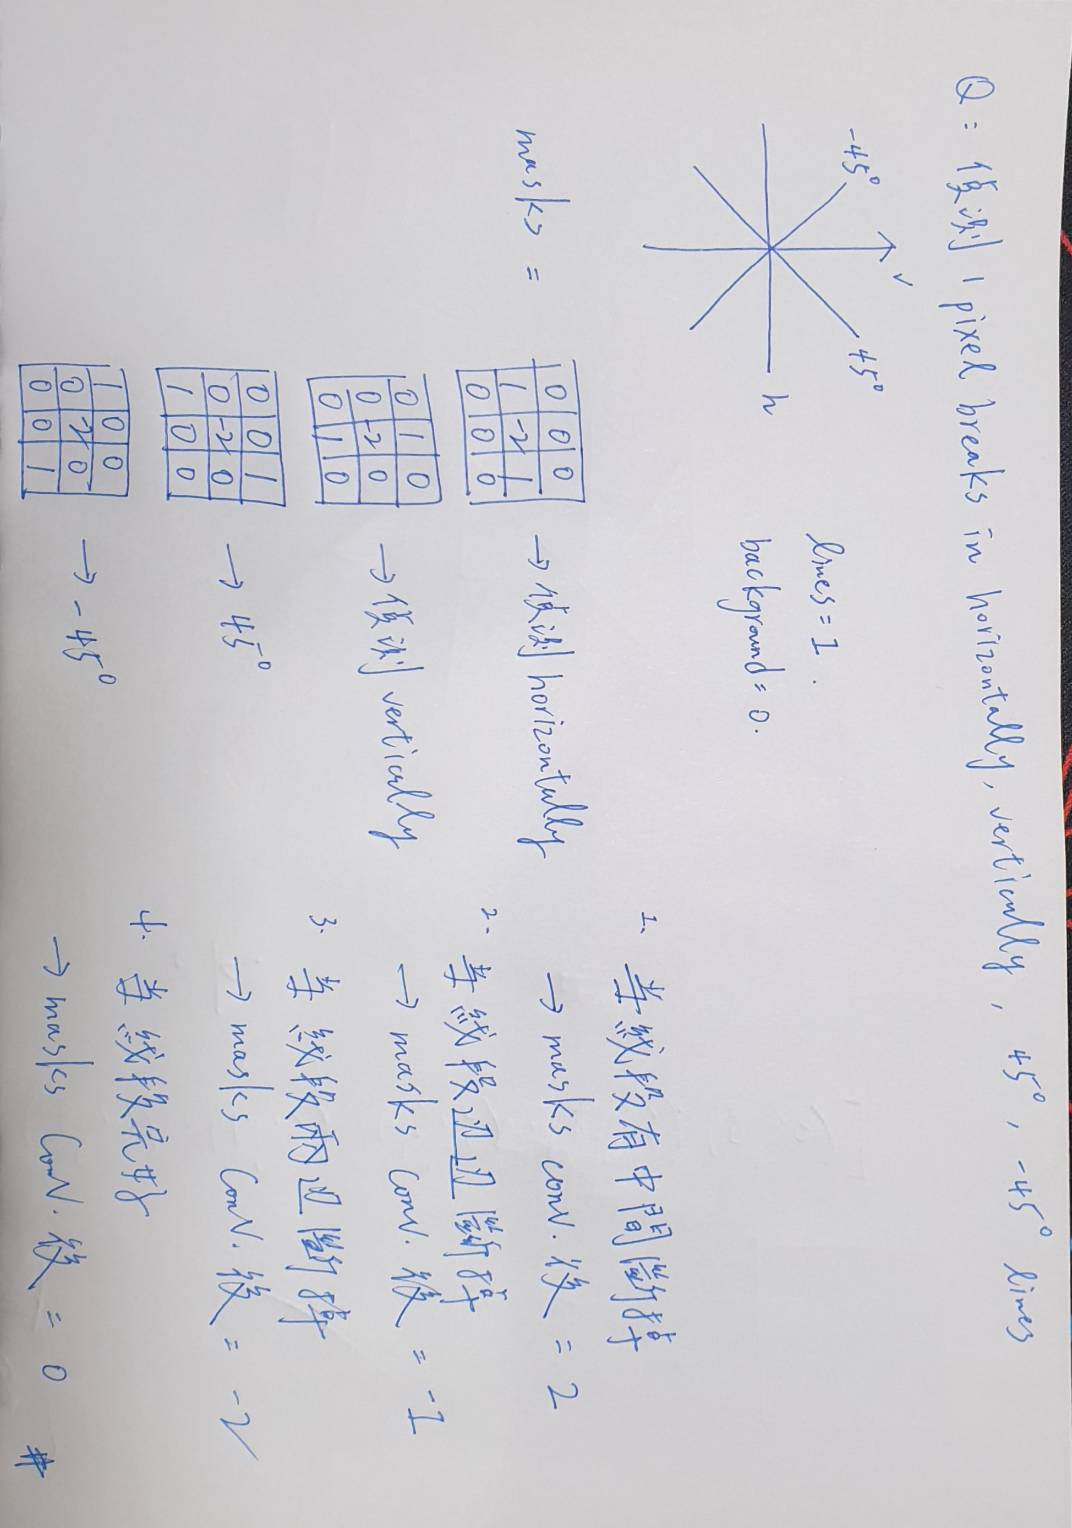 Q: 偵測 1 pixel breaks in horizontally, vertically, 45°, -45° lines
-45°
v
45°
h
lines = 1.
background = 0.
masks =
0 0 0
1 -2 1
0 0 0
→ 偵測 horizontally
0 1 0
0 -2 0
0 1 0
→ 偵測 vertically
0 0 1
0 -2 0
1 0 0
→ 45°
1 0 0
0 -2 0
0 0 1
→ -45°
1. 若線段有中間斷掉
→ masks conv. 後 = 2
2. 若線段边边斷掉
→ masks conv. 後 = -1
3. 若線段兩边斷掉
→ masks conv. 後 = -2
4. 若線段完好
→ masks conv. 後 = 0 #